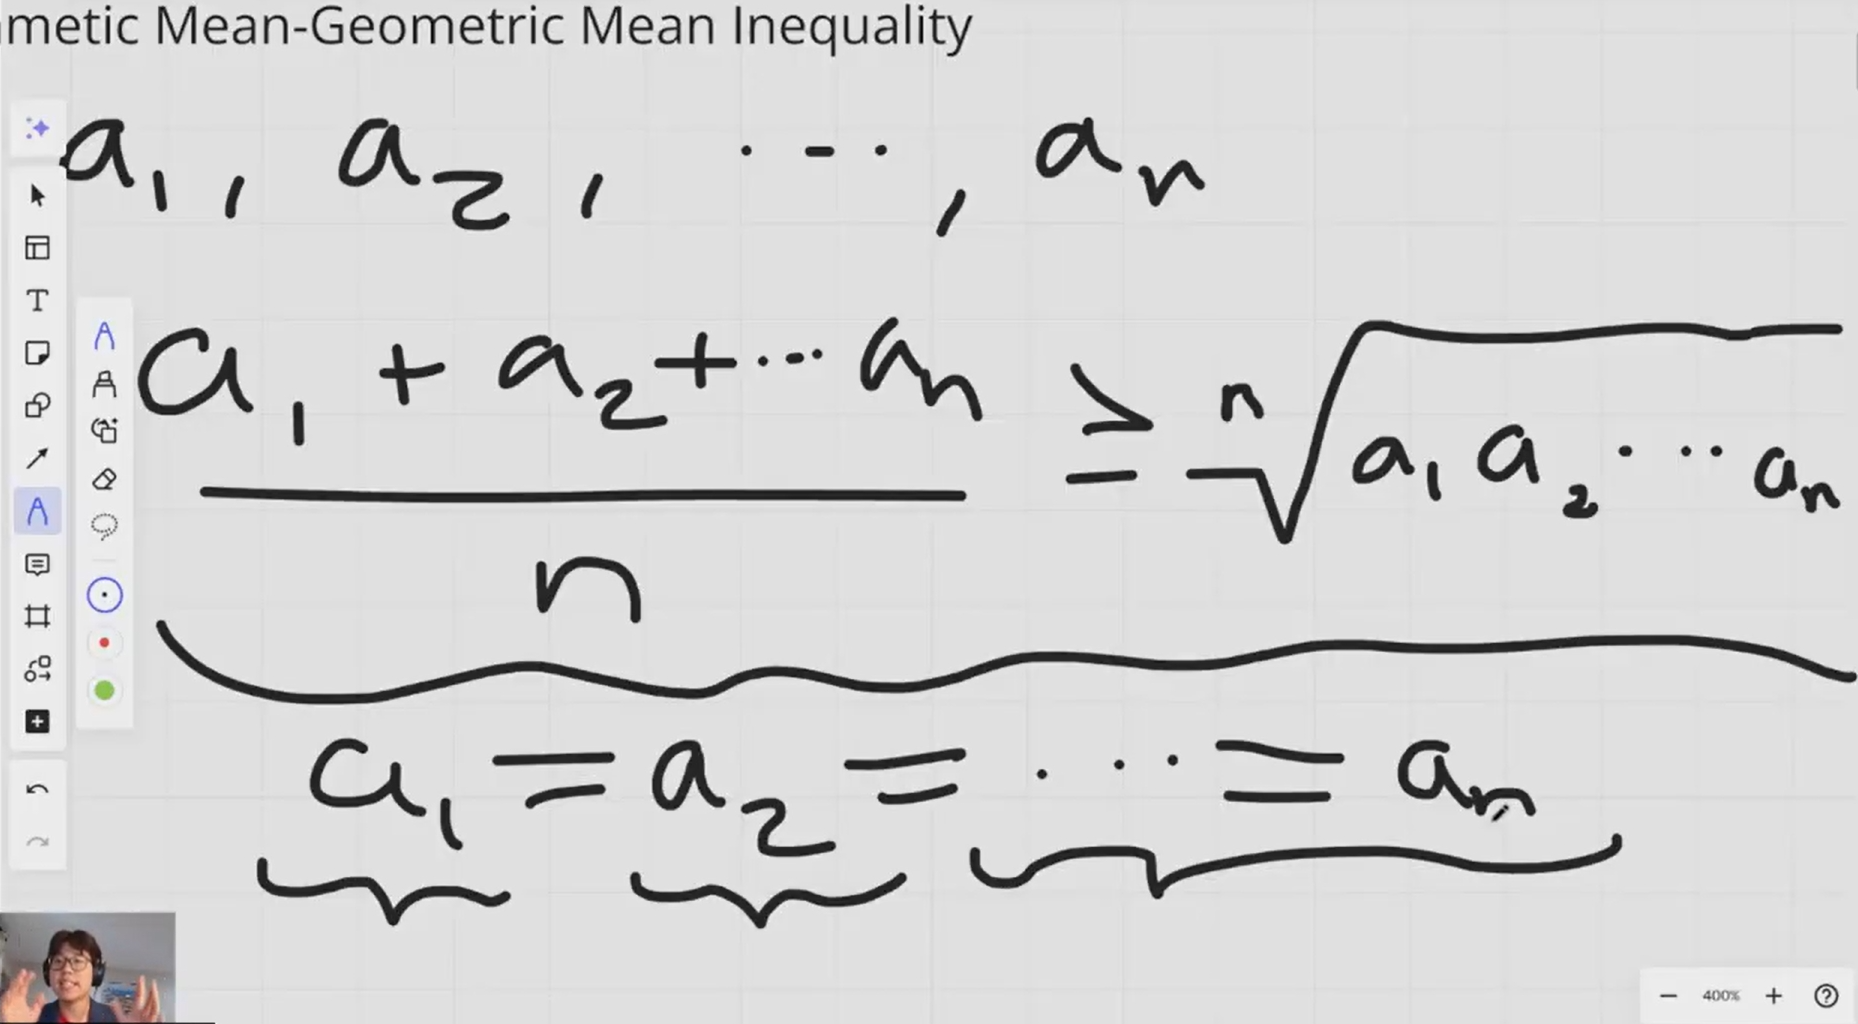 metic Mean-Geometric Mean Inequality
a₁, a₂, ..., aₙ
a₁ + a₂ + ... aₙ
n
≥ ⁿ√a₁ a₂ ... aₙ
a₁ = a₂ = ... = aₙ
400%